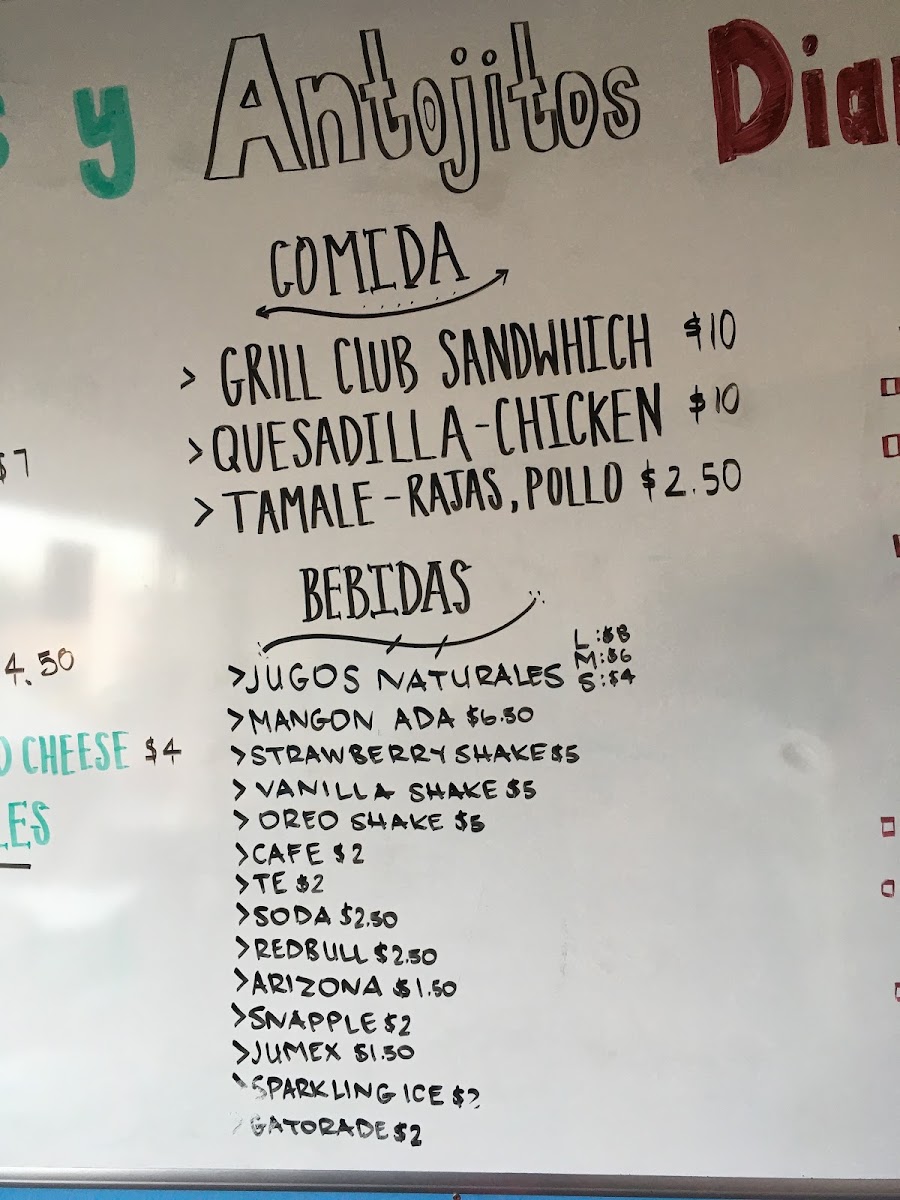 y Antojitos Dia
COMIDA
> GRILL CLUB SANDWHICH $10
> QUESADILLA-CHICKEN $10
> TAMALE-RAJAS, POLLO $2.50
$7
BEBIDAS
L:$8
M:$6
S:$4
> JUGOS NATURALES
4.50
> MANGON ADA $6.50
CHEESE $4
> STRAWBERRY SHAKE $5
> VANILLA SHAKE $5
LES
> OREO SHAKE $5
> CAFE $2
> TE $2
> SODA $2.50
> REDBULL $2.50
> ARIZONA $1.50
> SNAPPLE $2
> JUMEX $1.50
> SPARKLING ICE $2
> GATORADE $2